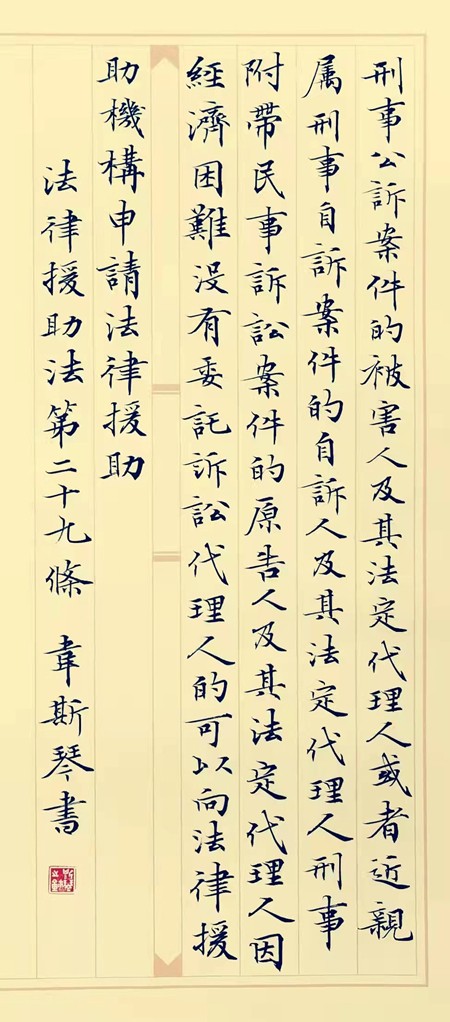 刑事公訴案件的被害人及其法定代理人或者近親
属刑事自訴案件的自訴人及其法定代理人刑事
附帶民事訴訟案件的原告人及其法定代理人因
經濟困難没有委託訴訟代理人的可以向法律援
助機構申請法律援助
法律援助法第二十九條 韋斯琴書